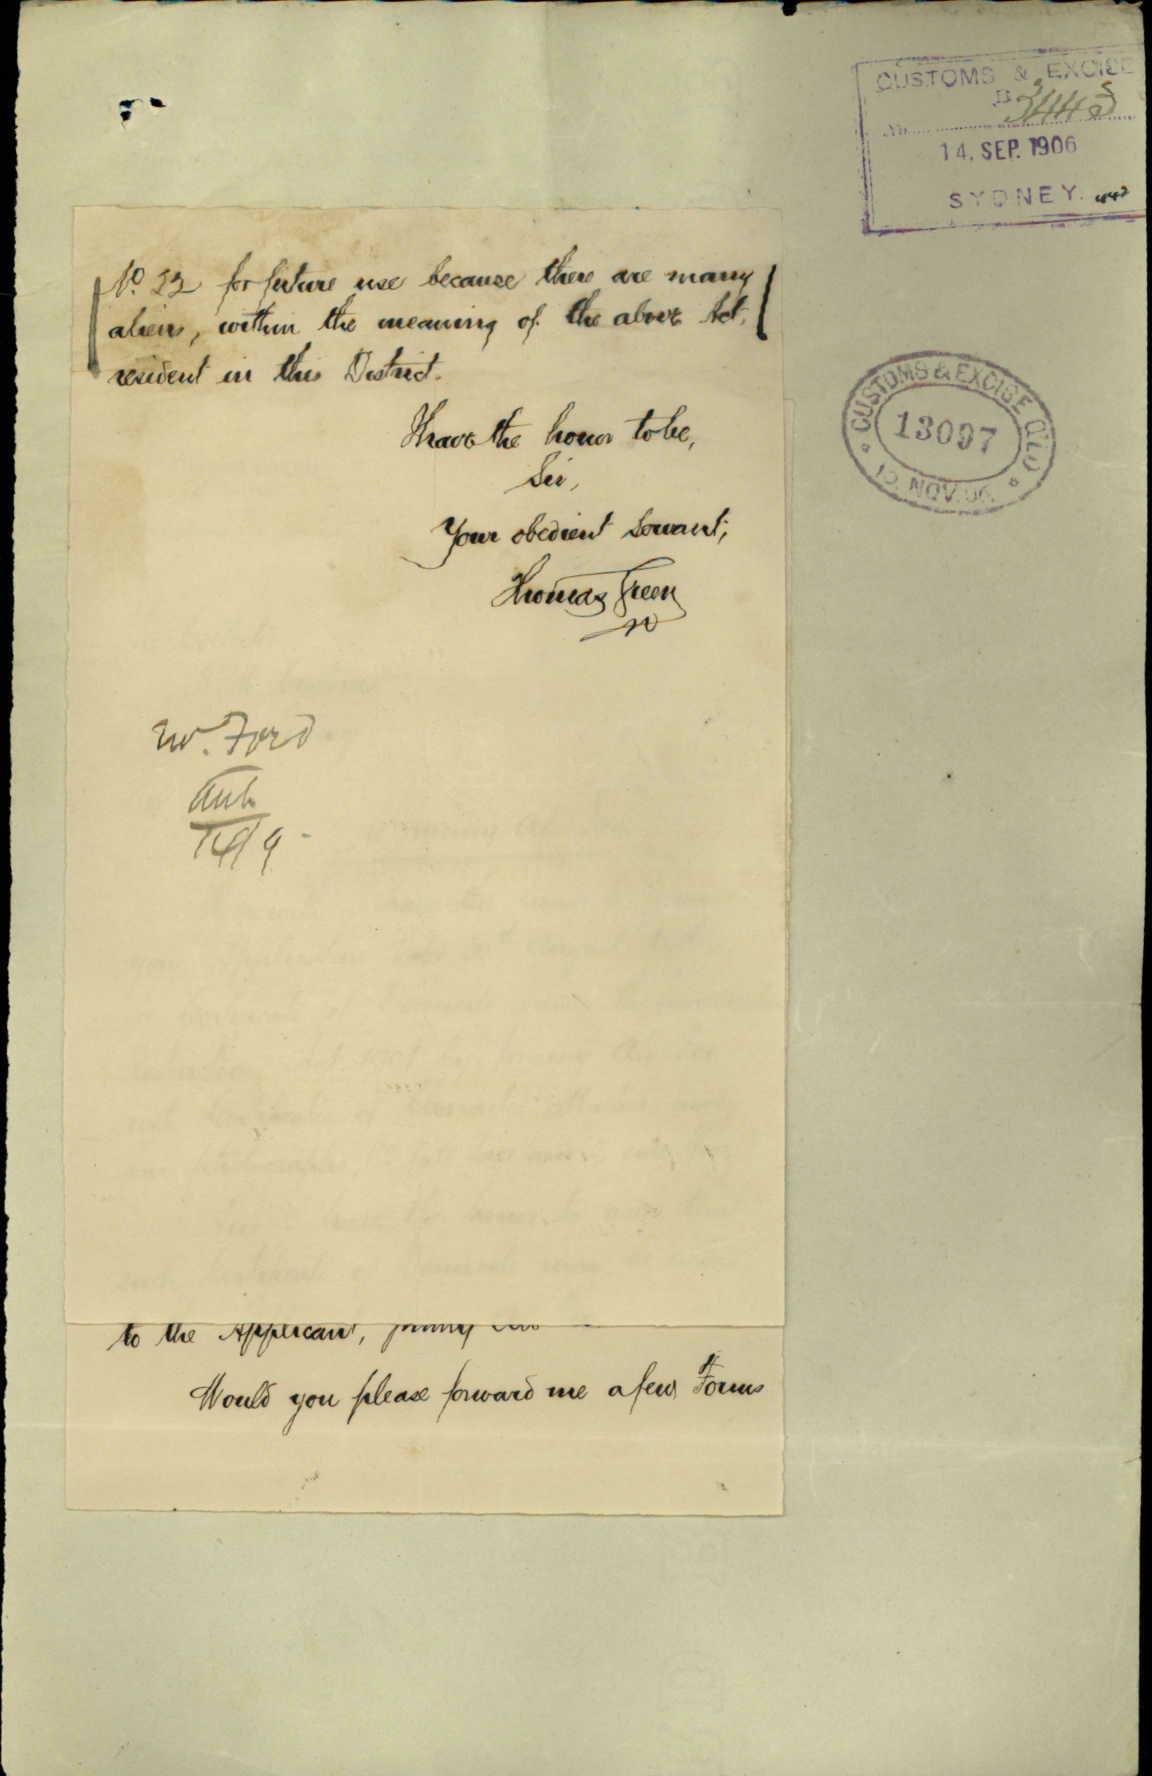 CUSTOMS & EXCISE
B
No.
14. SEP. 1906
SYDNEY.
No. 22 for future use because there are many
aliens, within the meaning of the above Act,
resident in this District.
I have the honor to be,
Sir,
Your obedient servant,
Thomas Green
CUSTOMS & EXCISE QLD
13097
NOV. 06
Ford
14/9
to the Applicant,
Would you please forward me a few Forms